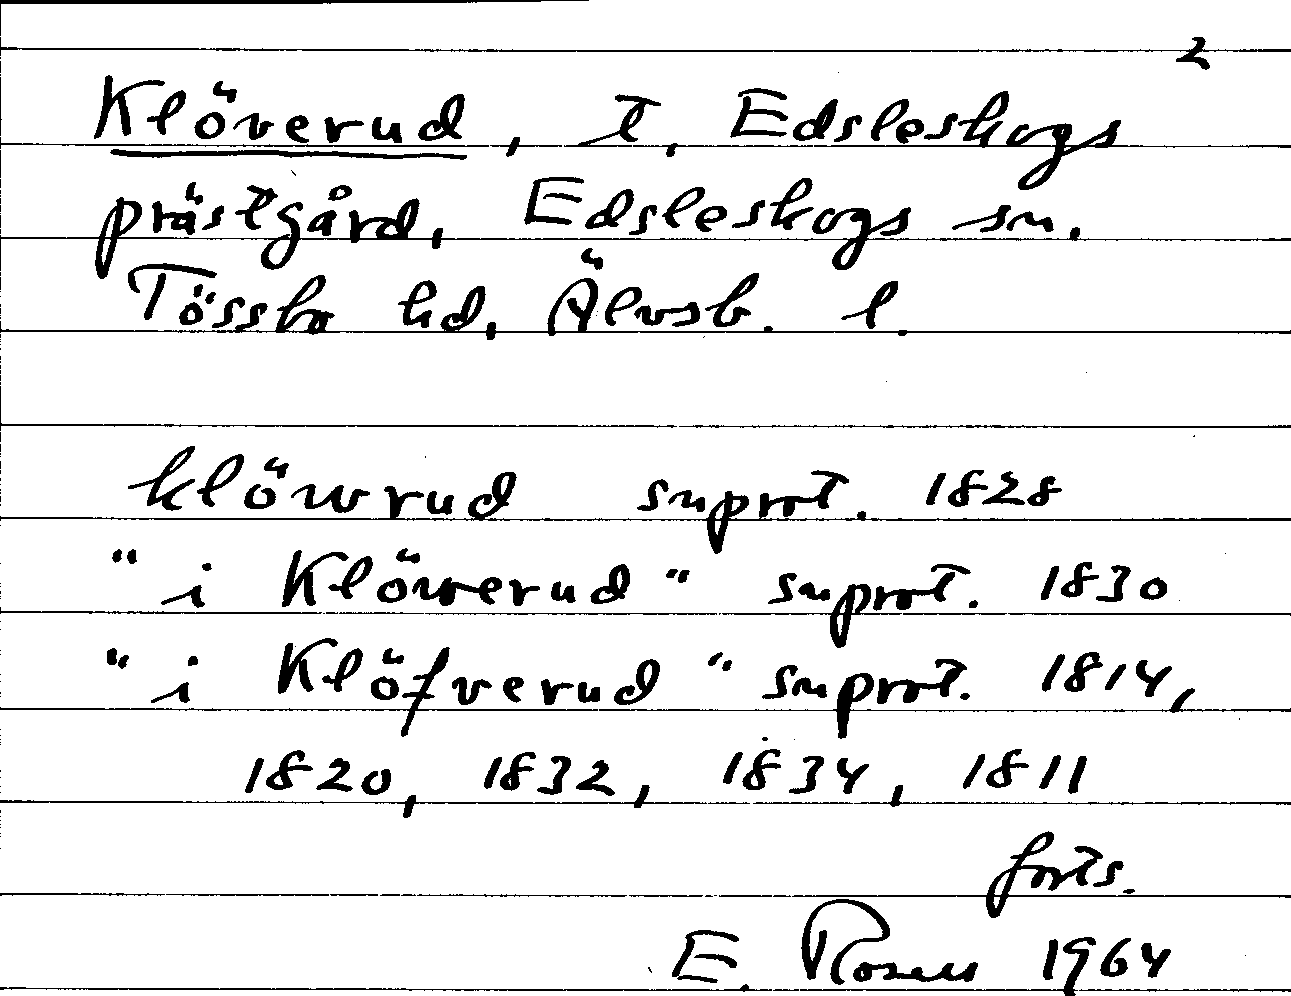 2
Klöverud, t, Edsleskogs
prästgård, Edsleskogs sn.
Tössbo hd, Älvsb. l.
klöwrud snprot. 1828
"i Klöwerud" snprot. 1830
"i Klöfverud" snprot. 1814,
1820, 1832, 1834, 1811
forts.
E. Rosen 1964